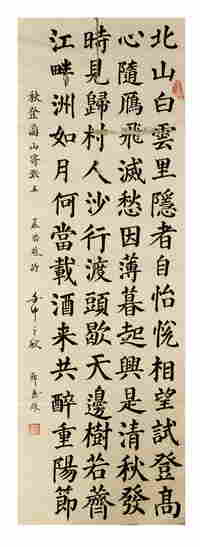 北山白雲里隱者自怡悅相望試登高
心隨鴈飛滅愁因薄暮起興是清秋發
時見歸村人沙行渡頭歇天邊樹若薺
江畔洲如月何當載酒来共醉重陽節
秋登蘭山寄張五 孟浩然詩 申之秋